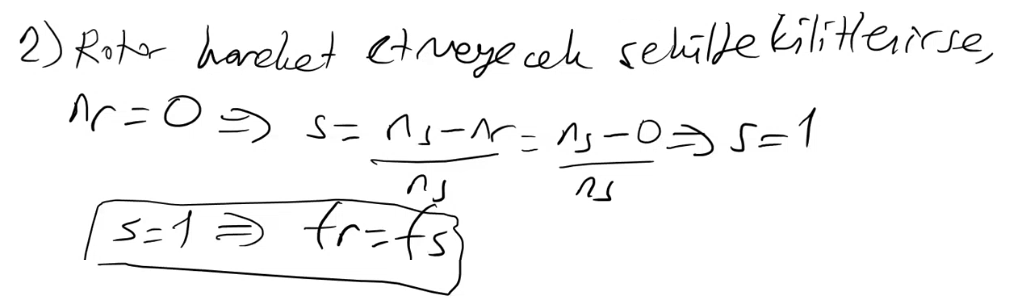 2) Rotor hareket etmeyecek şekilde kilitlenirse,
nr = 0 ⇒ s = (ns - nr)/ns = (ns - 0)/ns ⇒ s = 1
s = 1 ⇒ fr = fs